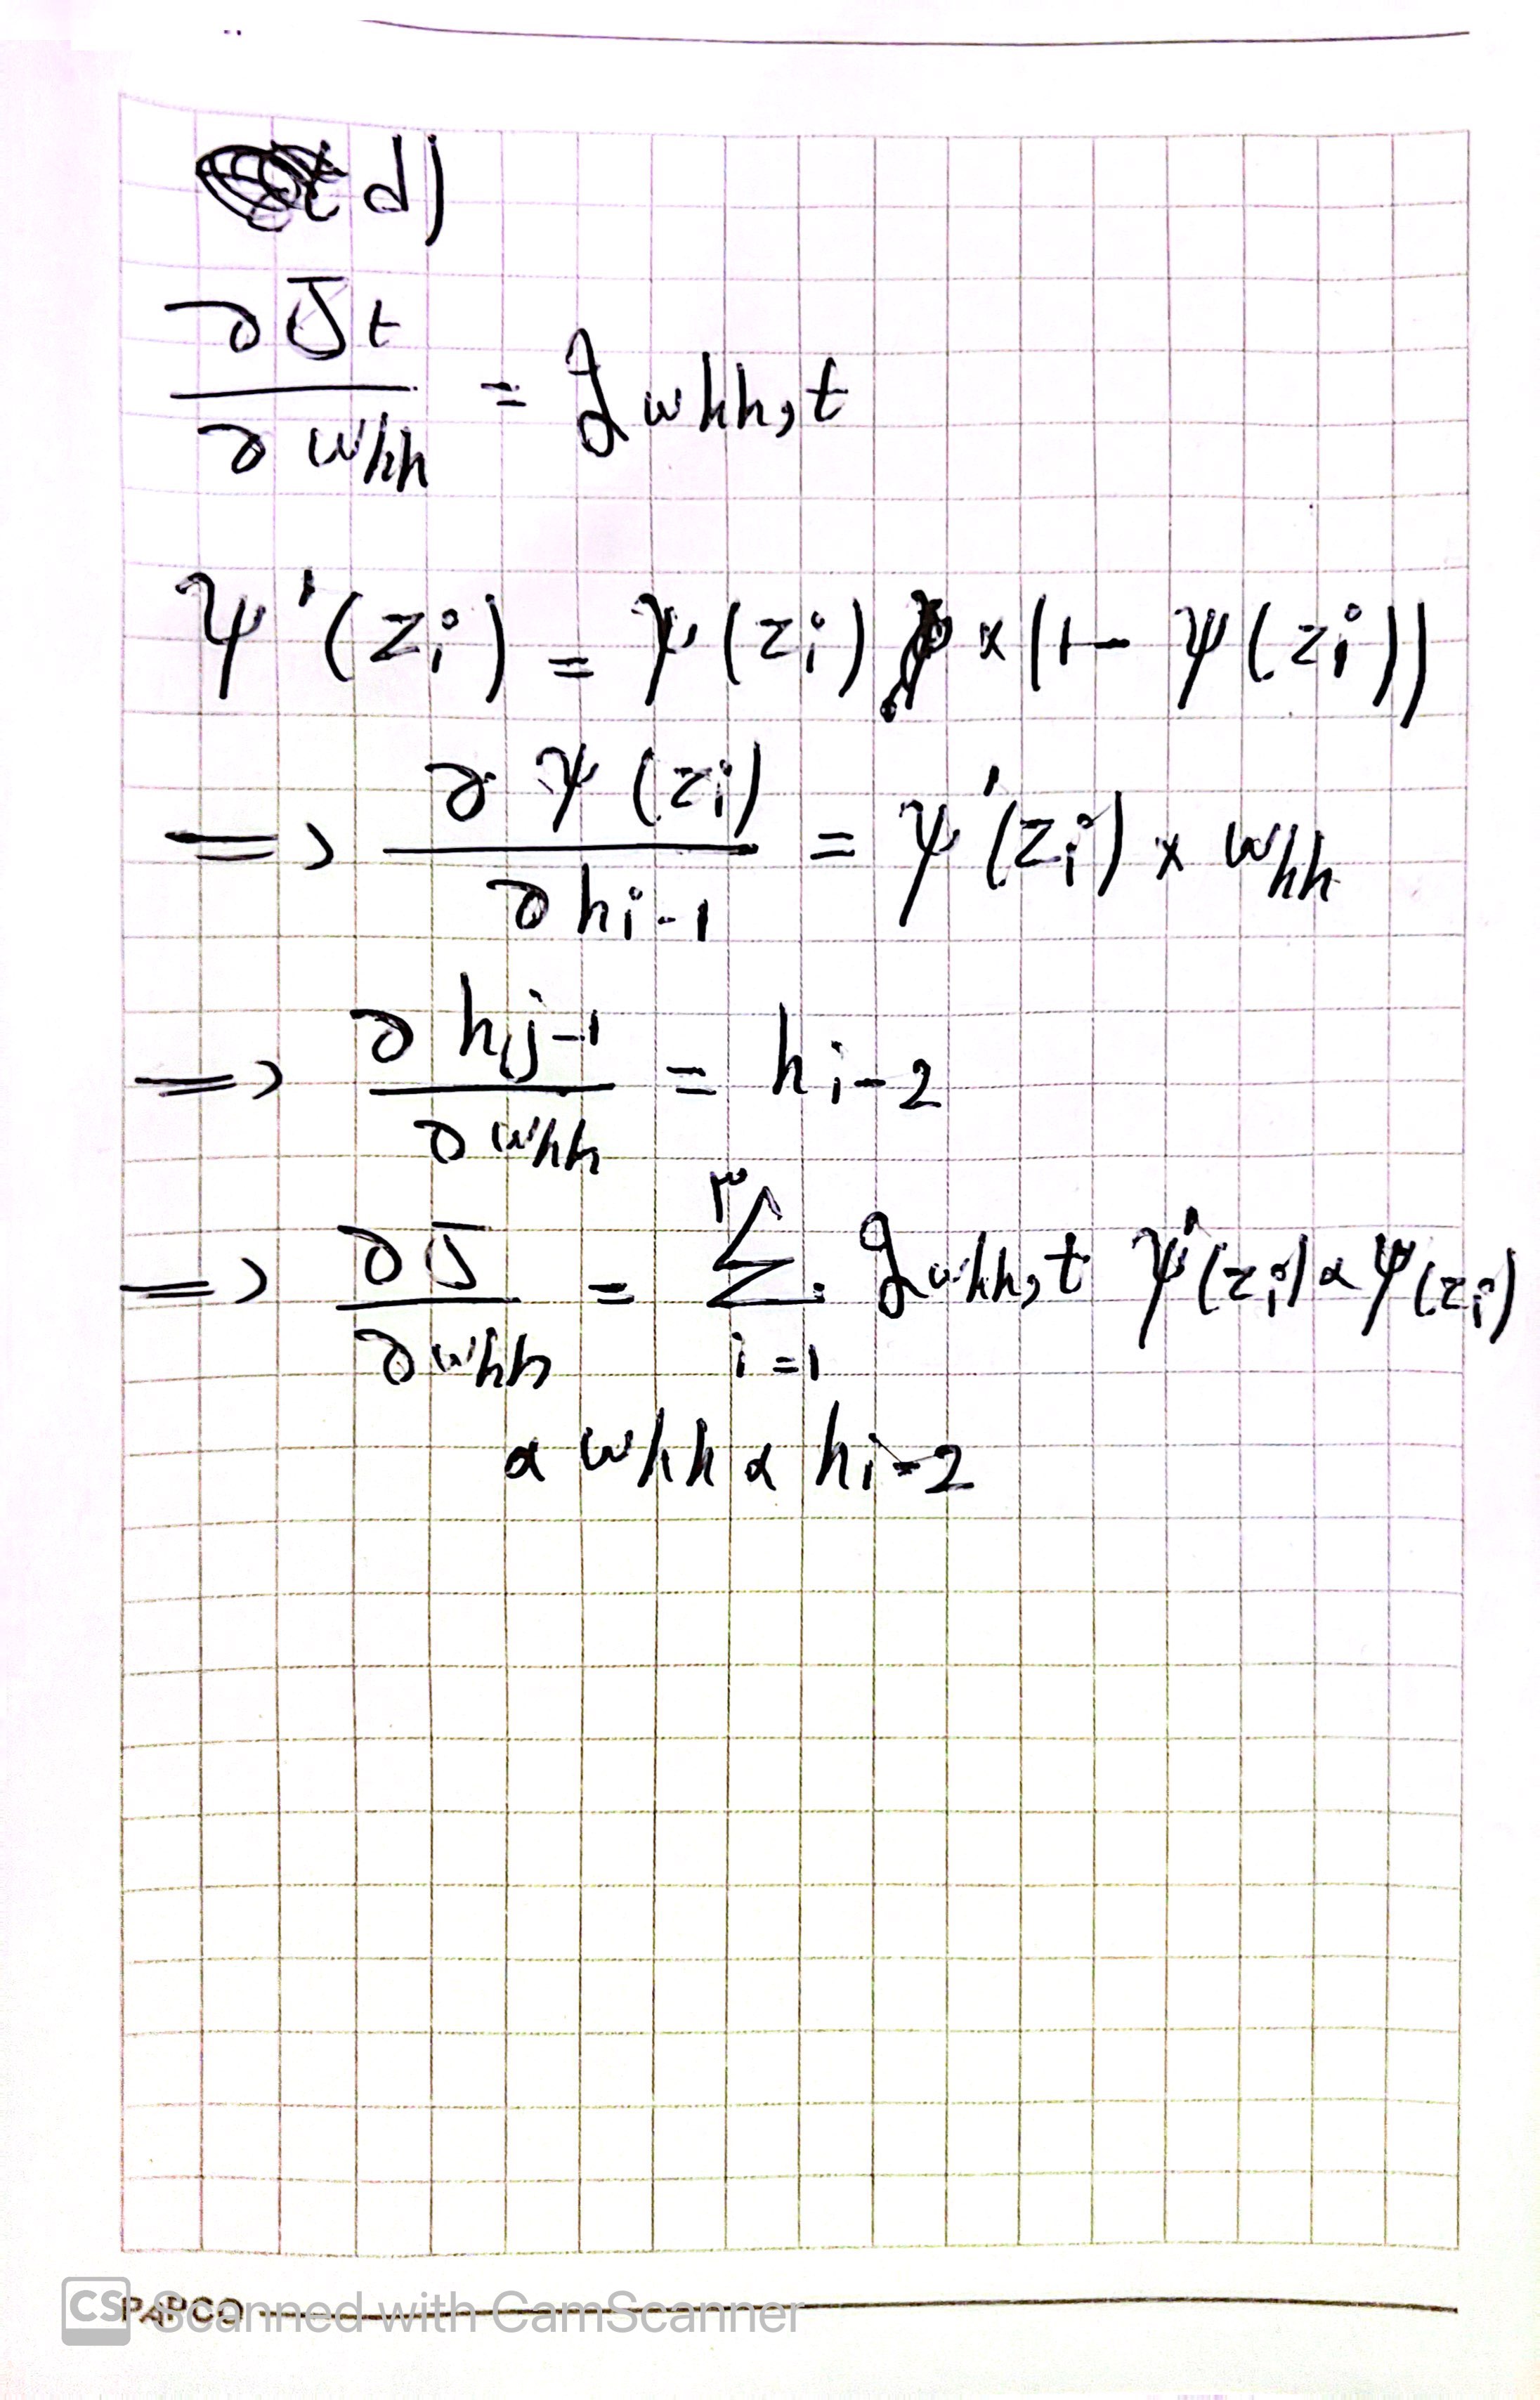 d)
∂Jt / ∂whh = gwhh,t
ψ'(zi) = ψ(zi) × (1 - ψ(zi))
=> ∂ψ(zi) / ∂hi-1 = ψ'(zi) × whh
=> ∂hj-1 / ∂whh = hi-2
=> ∂J / ∂whh = ۳Σi=1 gwhh,t ψ'(zi) × ψ(zi)
× whh × hi-2
PAPCO
CS Scanned with CamScanner